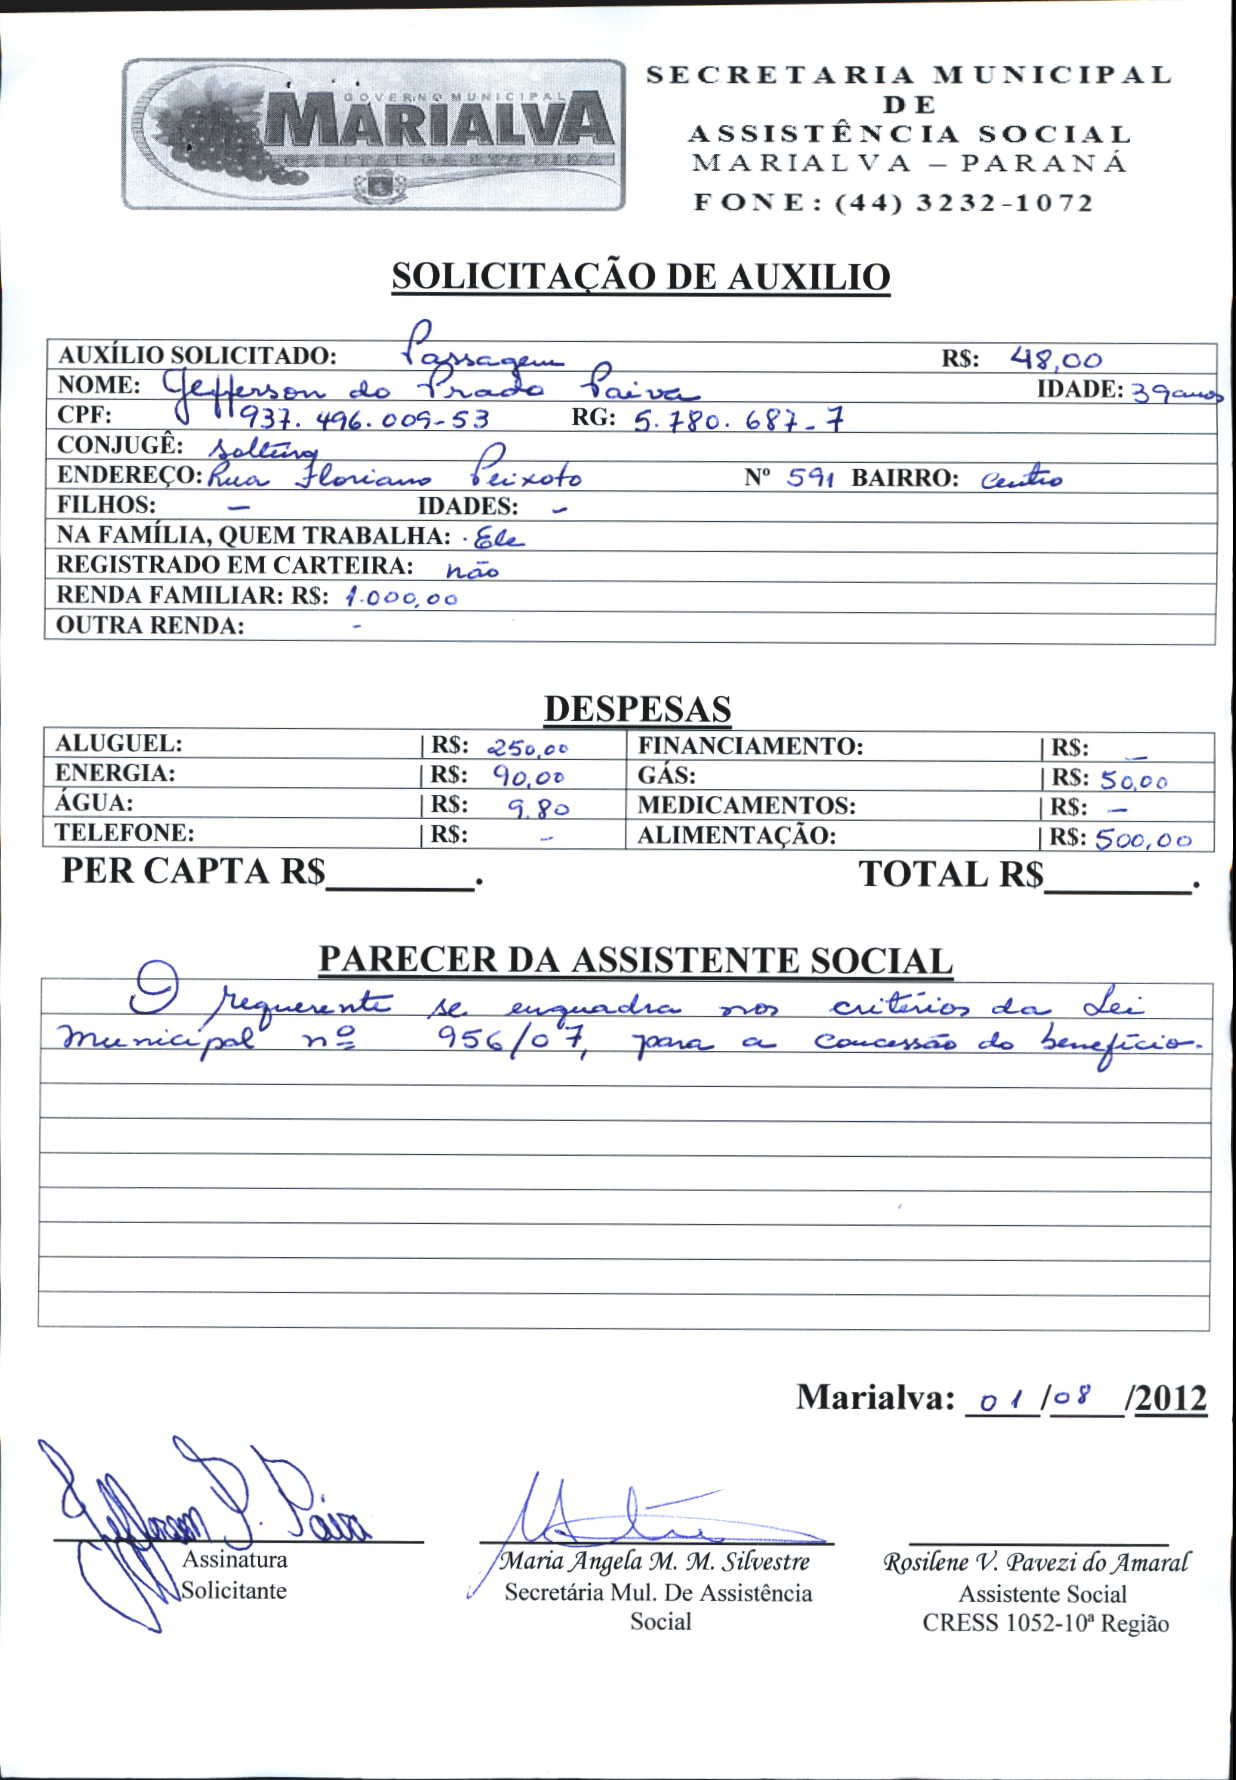 GOVERNO MUNICIPAL
MARIALVA
CAPITAL DA UVA FINA
SECRETARIA MUNICIPAL
DE
ASSISTÊNCIA SOCIAL
MARIALVA – PARANÁ
FONE: (44) 3232-1072
SOLICITAÇÃO DE AUXILIO
AUXÍLIO SOLICITADO: Passagem R$: 48,00
NOME: Jefferson do Prado Paiva IDADE: 39 anos
CPF: 937.496.009-53 RG: 5.780.687-7
CONJUGÊ: solteiro
ENDEREÇO: Rua Floriano Peixoto Nº 591 BAIRRO: Centro
FILHOS: – IDADES: –
NA FAMÍLIA, QUEM TRABALHA: . Ele
REGISTRADO EM CARTEIRA: não
RENDA FAMILIAR: R$: 1.000,00
OUTRA RENDA: -
DESPESAS
ALUGUEL: | R$: 250,00 FINANCIAMENTO: | R$: –
ENERGIA: | R$: 90,00 GÁS: | R$: 50,00
ÁGUA: | R$: 9,80 MEDICAMENTOS: | R$: –
TELEFONE: | R$: - ALIMENTAÇÃO: | R$: 500,00
PER CAPTA R$________. TOTAL R$________.
PARECER DA ASSISTENTE SOCIAL
O requerente se enquadra nos critérios da Lei
Municipal nº 956/07, para a concessão do benefício.
Marialva: 01/08/2012
Jefferson P. Paiva
Assinatura
Solicitante
Maria Angela M. M. Silvestre
Secretária Mul. De Assistência
Social
Rosilene V. Pavezi do Amaral
Assistente Social
CRESS 1052-10ª Região